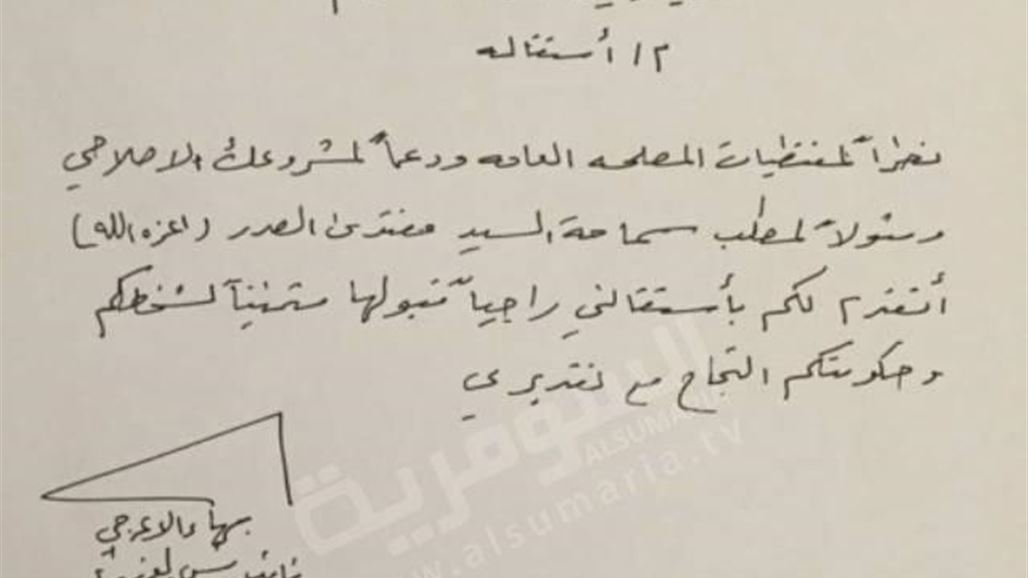 م / أستقاله
نظراً لمقتضيات المصلحه العامه ودعماً لمشروعك الاصلاحي
ونزولاً لمطلب سماحة السيد مقتدى الصدر (اعزه الله)
أتقدم لكم بأستقالتي راجياً قبولها متمنياً لشخصكم
وحكومتكم النجاح مع تقديري
السومرية
ALSUMARIA
www.alsumaria.tv
بهاء الاعرجي